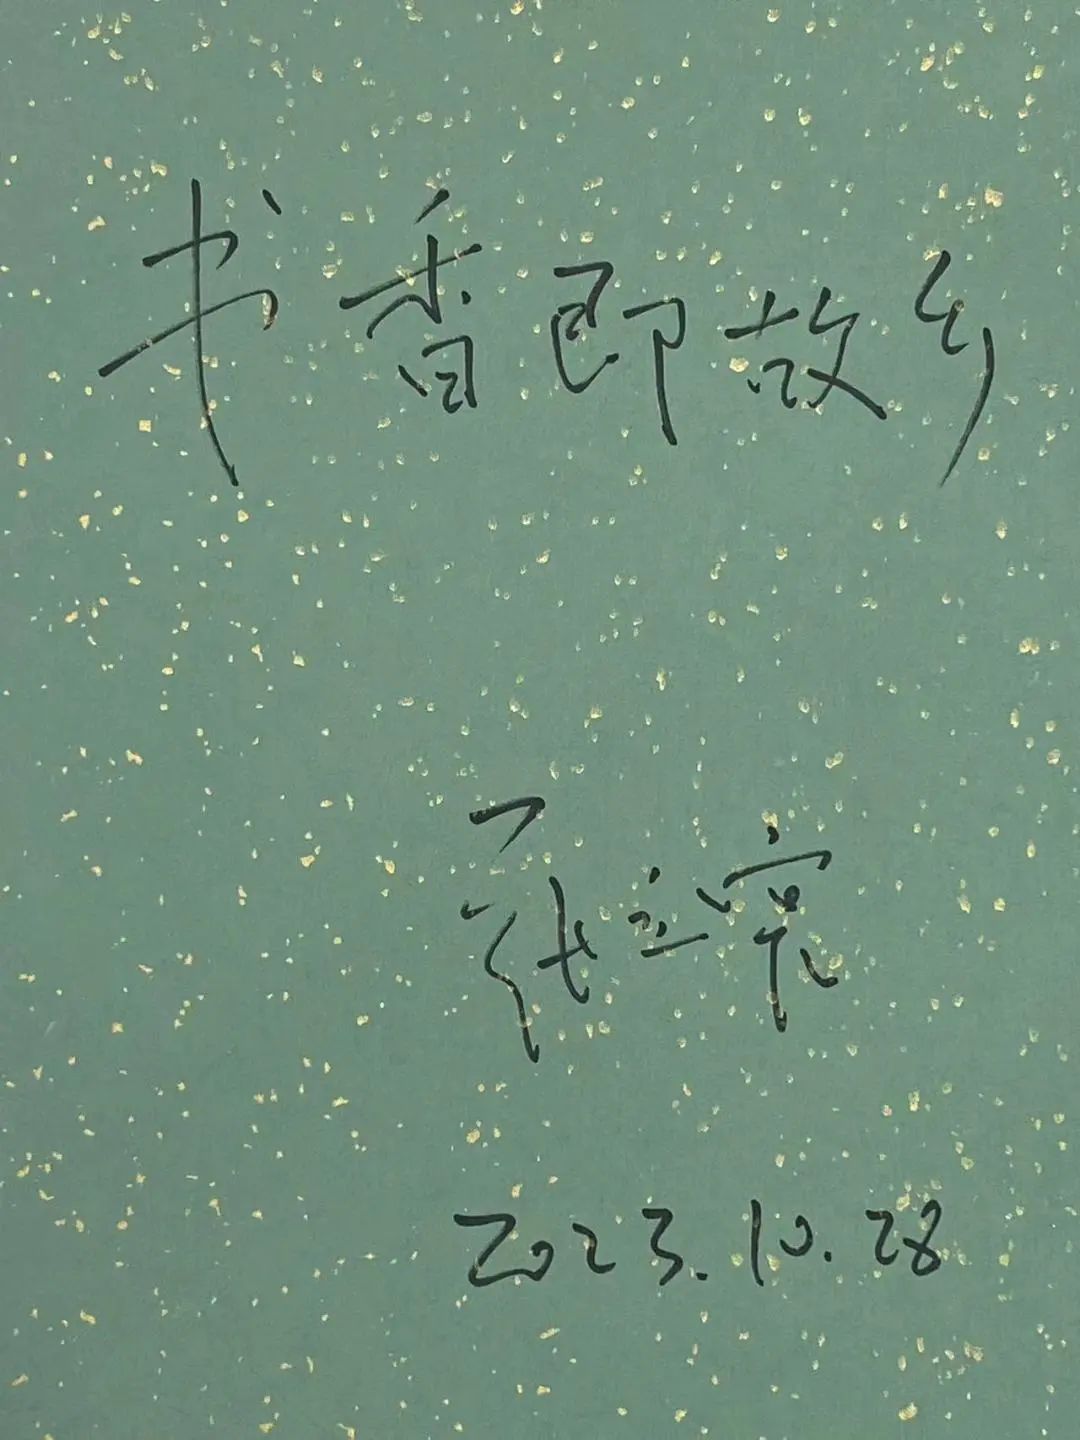 书香即故乡
张立宪
2023.10.28